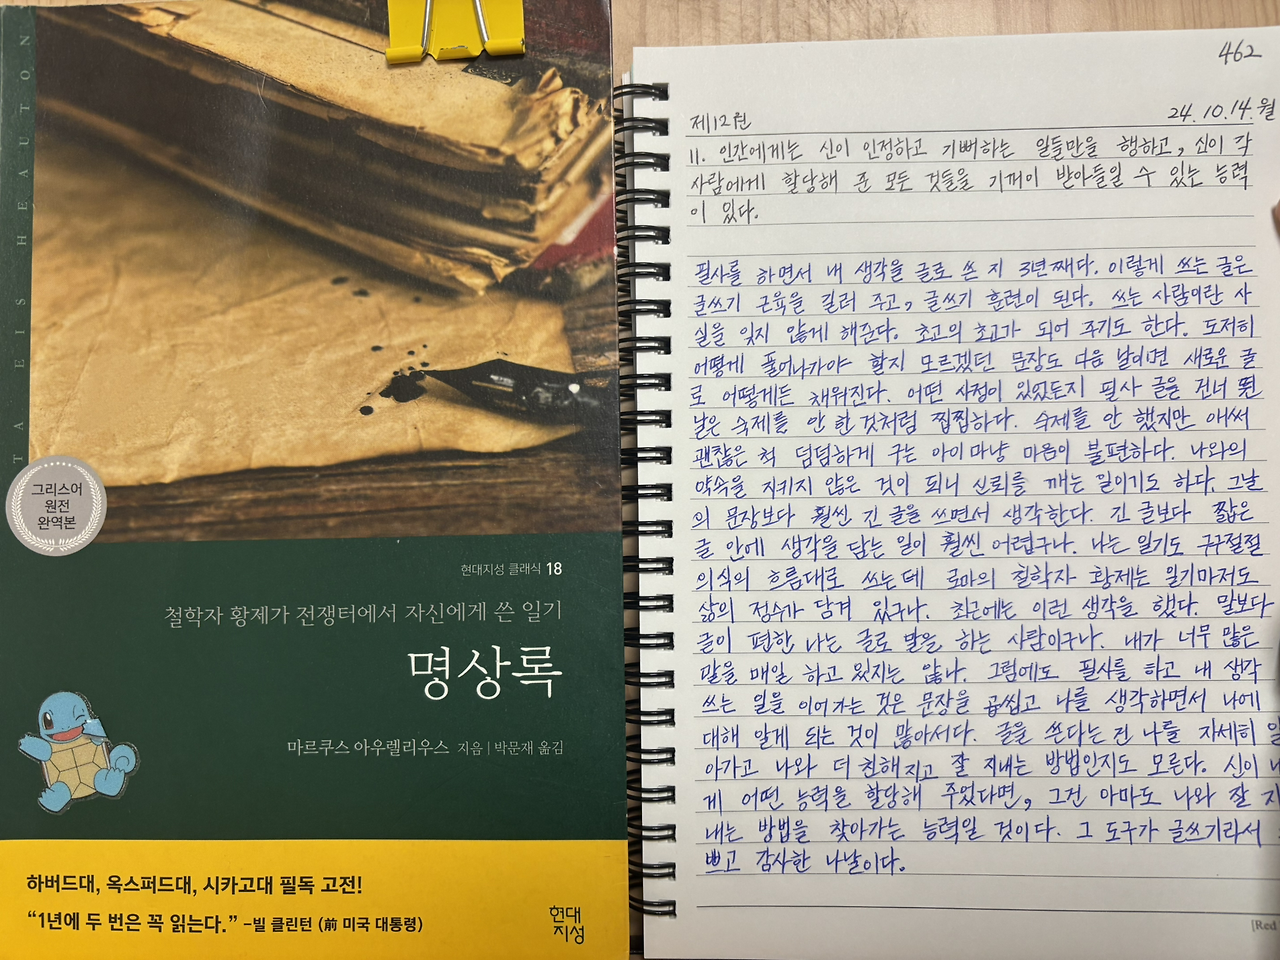 TA EIS HEAUTON
그리스어
원전
완역본
현대지성 클래식 18
철학자 황제가 전쟁터에서 자신에게 쓴 일기
명상록
마르쿠스 아우렐리우스 지음 | 박문재 옮김
하버드대, 옥스퍼드대, 시카고대 필독 고전!
“1년에 두 번은 꼭 읽는다.” –빌 클린턴 (前 미국 대통령)
현대
지성
462
제12권 24.10.14.월
11. 인간에게는 신이 인정하고 기뻐하는 일들만을 행하고, 신이 각
사람에게 할당해 준 모든 것들을 기꺼이 받아들일 수 있는 능력
이 있다.
필사를 하면서 내 생각을 글로 쓴 지 3년째다. 이렇게 쓰는 글은
글쓰기 근육을 길러 주고, 글쓰기 훈련이 된다. 쓰는 사람이란 사
실을 잊지 않게 해준다. 초고의 초고가 되어 주기도 한다. 도저히
어떻게 풀어나가야 할지 모르겠던 문장도 다음 날이면 새로운 글
로 어떻게든 채워진다. 어떤 사정이 있었든지 필사 글을 건너 뛴
날은 숙제를 안 한 것처럼 찝찝하다. 숙제를 안 했지만 애써
괜찮은 척 덤덤하게 구는 아이마냥 마음이 불편하다. 나와의
약속을 지키지 않은 것이 되니 신뢰를 깨는 일이기도 하다. 그날
의 문장보다 훨씬 긴 글을 쓰면서 생각한다. 긴 글보다 짧은
글 안에 생각을 담는 일이 훨씬 어렵구나. 나는 일기도 구구절절
의식의 흐름대로 쓰는데 로마의 철학자 황제는 일기마저도
삶의 정수가 담겨 있구나. 최근에는 이런 생각을 했다. 말보다
글이 편한 나는 글로 말을 하는 사람이구나. 내가 너무 많은
말을 매일 하고 있지는 않나. 그럼에도 필사를 하고 내 생각
쓰는 일을 이어가는 것은 문장을 곱씹고 나를 생각하면서 나에
대해 알게 되는 것이 많아서다. 글을 쓴다는 건 나를 자세히 알
아가고 나와 더 친해지고 잘 지내는 방법인지도 모른다. 신이 내
게 어떤 능력을 할당해 주었다면, 그건 아마도 나와 잘 지
내는 방법을 찾아가는 능력일 것이다. 그 도구가 글쓰기라서
쁘고 감사한 나날이다.
[Red